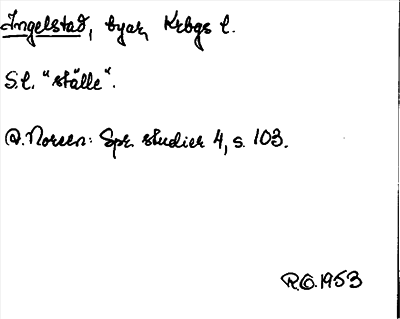 Ingelstad, byar, Krbgs l.
S.l. "ställe".
A. Noreen: Spr. studier 4, s. 103.
R.O. 1953